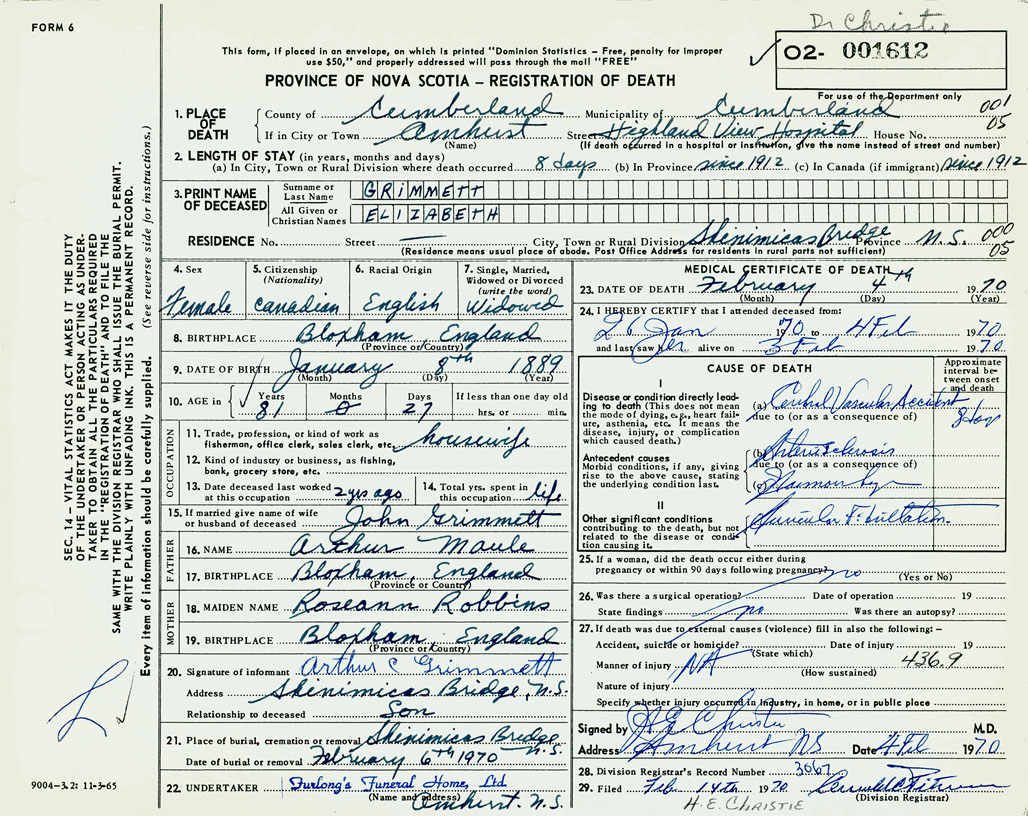 FORM 6
Dr Christie
This form, if placed in an envelope, on which is printed "Dominion Statistics – Free, penalty for improper
use $50," and properly addressed will pass through the mail "FREE"
PROVINCE OF NOVA SCOTIA – REGISTRATION OF DEATH
O2- 001612
For use of the Department only
001
05
1. PLACE OF DEATH
County of Cumberland Municipality of Cumberland
If in City or Town Amherst Street Highland View Hospital House No.
(Name) (If death occurred in a hospital or institution, give the name instead of street and number)
2. LENGTH OF STAY (in years, months and days)
(a) In City, Town or Rural Division where death occurred 8 days (b) In Province since 1912 (c) In Canada (if immigrant) since 1912
3. PRINT NAME OF DECEASED
Surname or Last Name GRIMMETT
All Given or Christian Names ELIZABETH
RESIDENCE No. Street — City, Town or Rural Division Shinimicas Bridge Province N.S. 000
05
(Residence means usual place of abode. Post Office Address for residents in rural parts not sufficient)
4. Sex
Female
5. Citizenship
(Nationality)
Canadian
6. Racial Origin
English
7. Single, Married,
Widowed or Divorced
(write the word)
Widowed
8. BIRTHPLACE Bloxham, England
(Province or Country)
9. DATE OF BIRTH January 8th 1889
(Month) (Day) (Year)
10. AGE in Years Months Days If less than one day old
81 0 27 hrs. or min.
OCCUPATION
11. Trade, profession, or kind of work as
fishermen, office clerk, sales clerk, etc. housewife
12. Kind of industry or business, as fishing,
bank, grocery store, etc.
13. Date deceased last worked
at this occupation 2 yrs ago
14. Total yrs. spent in
this occupation life
15. If married give name of wife
or husband of deceased John Grimmett
FATHER
16. NAME Arthur Maule
17. BIRTHPLACE Bloxham, England
(Province or Country)
MOTHER
18. MAIDEN NAME Roseann Robbins
19. BIRTHPLACE Bloxham England
(Province or Country)
20. Signature of informant Arthur C Grimmett
Address Shinimicas Bridge, N.S.
Relationship to deceased Son
21. Place of burial, cremation or removal Shinimicas Bridge
N.S.
Date of burial or removal February 6th 1970
22. UNDERTAKER Furlong's Funeral Home, Ltd.
(Name and address) Amherst. N.S.
MEDICAL CERTIFICATE OF DEATH
23. DATE OF DEATH February 4th 1970
(Month) (Day) (Year)
24. I HEREBY CERTIFY that I attended deceased from:
26 Jan 1970 to 4 Feb 1970
and last saw her alive on 3 Feb 1970.
CAUSE OF DEATH
Approximate
interval be-
tween onset
and death
I
Disease or condition directly lead-
ing to death (This does not mean
the mode of dying, e.g., heart fail-
ure, asthenia, etc. It means the
disease, injury, or complication
which caused death.)
(a) Cerebral Vascular Accident 8 days
due to (or as a consequence of)
Antecedent causes
Morbid conditions, if any, giving
rise to the above cause, stating
the underlying condition last.
(b) Arteriosclerosis
due to (or as a consequence of)
(c)
II
Other significant conditions
contributing to the death, but not
related to the disease or condi-
tion causing it.
Auricular Fibrillation
25. If a woman, did the death occur either during
pregnancy or within 90 days following pregnancy? no
(Yes or No)
26. Was there a surgical operation? Date of operation 19
State findings no Was there an autopsy?
27. If death was due to external causes (violence) fill in also the following: –
Accident, suicide or homicide? Date of injury 19
(State which)
Manner of injury NA 436.9
(How sustained)
Nature of injury
Specify whether injury occurred in industry, in home, or in public place
Signed by H E Christie M.D.
Address Amherst NS Date 4 Feb 1970
28. Division Registrar's Record Number 3067
29. Filed Feb 14th 1970
(Division Registrar)
H.E. CHRISTIE
SEC. 14 – VITAL STATISTICS ACT MAKES IT THE DUTY
OF THE UNDERTAKER OR PERSON ACTING AS UNDER-
TAKER TO OBTAIN ALL THE PARTICULARS REQUIRED
IN THE "REGISTRATION OF DEATH" AND TO FILE THE
SAME WITH THE DIVISION REGISTRAR WHO SHALL ISSUE THE BURIAL PERMIT.
WRITE PLAINLY WITH UNFADING INK. THIS IS A PERMANENT RECORD.
Every item of information should be carefully supplied. (See reverse side for instructions.)
9004-3.2: 11-3-65